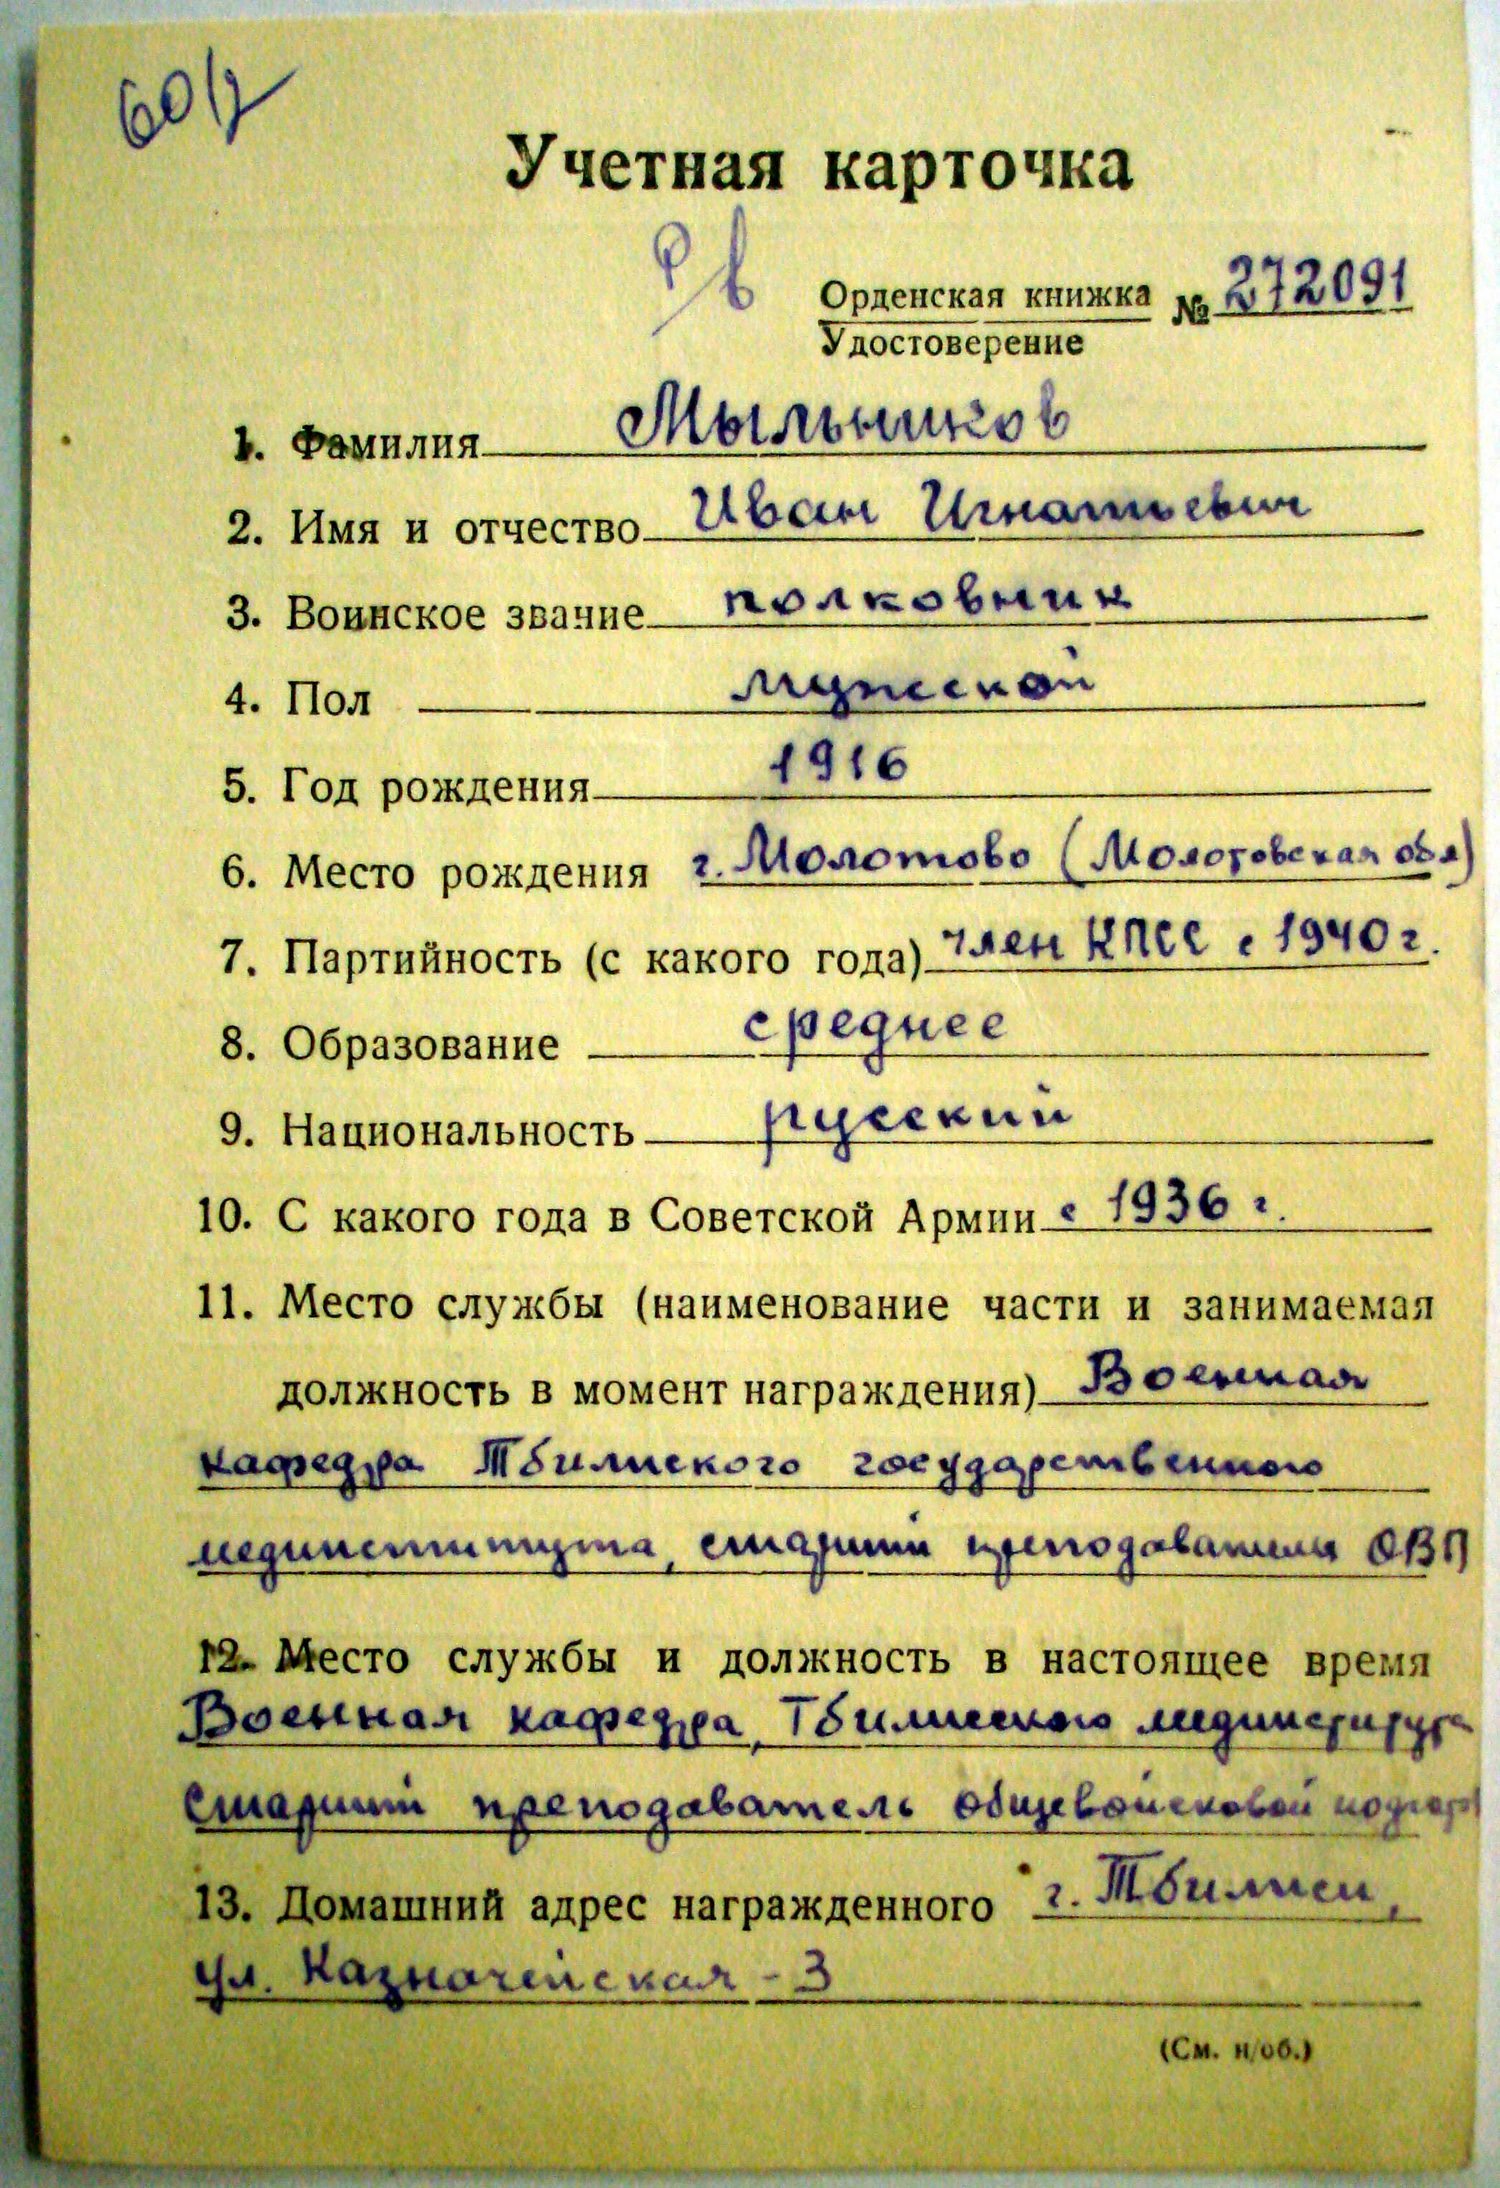 Учетная карточка
Орденская книжка № 272091
Удостоверение
1. Фамилия Мыльников
2. Имя и отчество Иван Игнатьевич
3. Воинское звание полковник
4. Пол мужской
5. Год рождения 1916
6. Место рождения г. Молотово (Молотовская обл)
7. Партийность (с какого года) член КПСС с 1940 г.
8. Образование среднее
9. Национальность русский
10. С какого года в Советской Армии с 1936 г.
11. Место службы (наименование части и занимаемая
должность в момент награждения) Военная
кафедра Тбилиского государственного
мединститута, старший преподаватель ОВП
12. Место службы и должность в настоящее время
Военная кафедра, Тбилисского мединститута
старший преподаватель общевойсковой
13. Домашний адрес награжденного г. Тбилиси,
ул. Казначейская - 3
(См. н/об.)